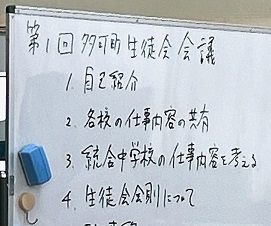 第1回 多可町 生徒会会議
1. 自己紹介
2. 各校の仕事内容の共有
3. 統合中学校の仕事内容を考える
4. 生徒会会則について